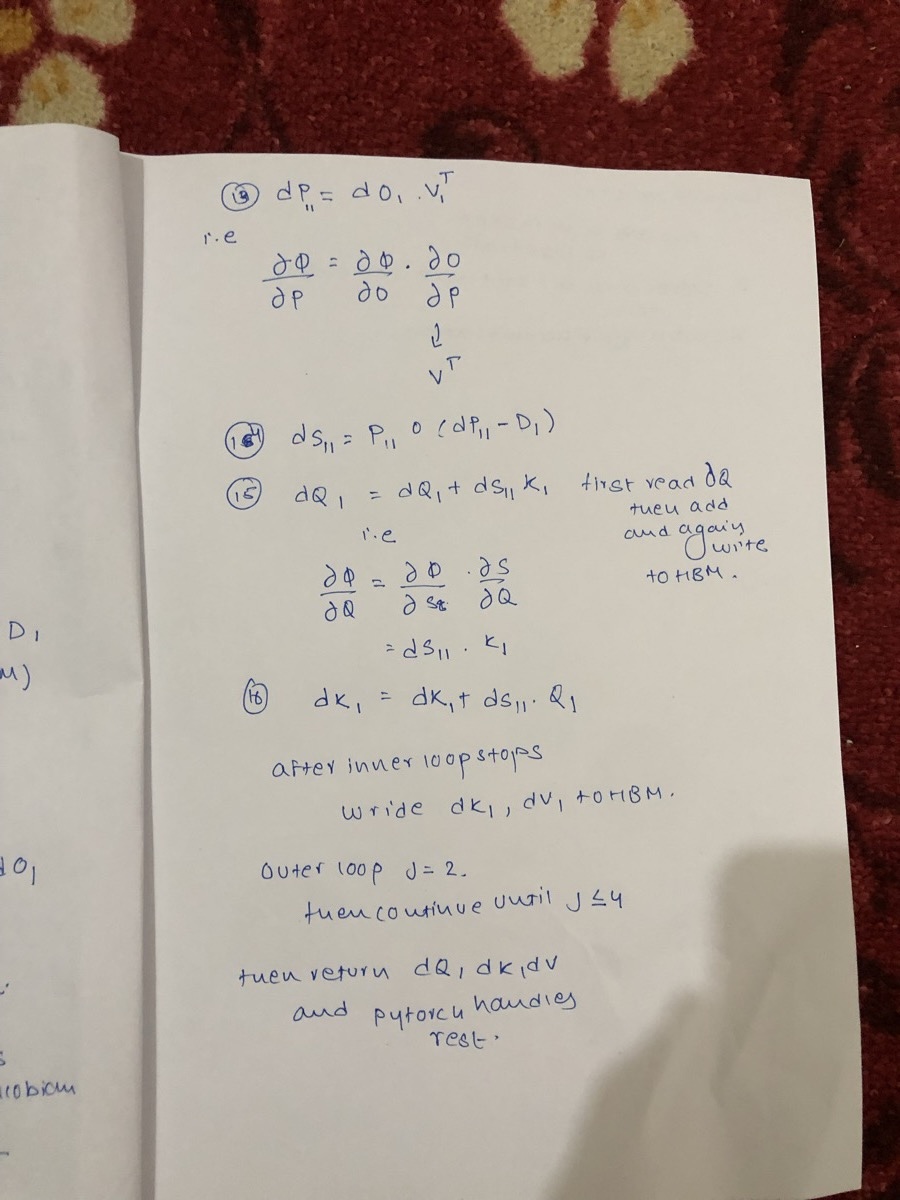 D₁
M)
dO₁
s
acobian
⑬ dP₁₁ = dO₁ . V₁ᵀ
i.e
∂Φ/∂P = ∂Φ/∂O . ∂O/∂P
↓
Vᵀ
⑭ dS₁₁ = P₁₁ o (dP₁₁ - D₁)
⑮ dQ₁ = dQ₁ + dS₁₁ K₁ first read ∂Q
then add
and again
write
to HBM.
i.e
∂Φ/∂Q = ∂Φ/∂S . ∂S/∂Q
= dS₁₁ . K₁
⑯ dK₁ = dK₁ + dS₁₁ . Q₁
after inner loop stops
wride dK₁, dV₁ to HBM.
Outer loop J = 2.
then continue until J ≤ 4
then return dQ, dK, dV
and pytorch handles
rest.